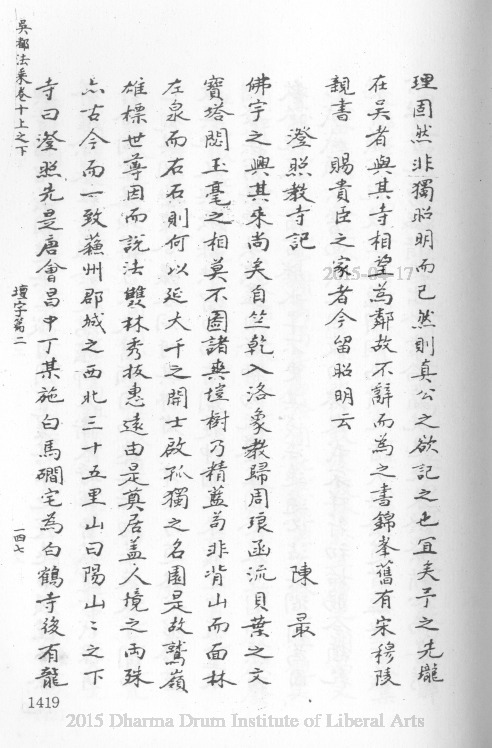 理固然非獨昭明而已然則真公之欲記之也宜矣予之先壠
在吳者與其寺相望為鄰故不辭而為之書錦峯舊有宋穆陵
親書 賜貴臣之家者今留昭明云
澄照教寺記 陳最
佛宇之興其來尚矣自竺乾入洛象教歸周琅函流貝葉之文
寶塔閟玉毫之相莫不圖諸爽塏樹乃精藍苟非背山而面林
左泉而右石則何以延大千之開士啟孤獨之名園是故鷲嶺
雄標世尊因而說法雙林秀拔惠遠由是奠居盖人境之両殊
亦古今而一致蘓州郡城之西北三十五里山曰陽山〻之下
寺曰澄照先是唐會昌中丁某施白馬磵宅為白鶴寺後有龍
吳都法乘卷十上之下
壇字第二
一四七
1419
2015-04-17
2015 Dharma Drum Institute of Liberal Arts